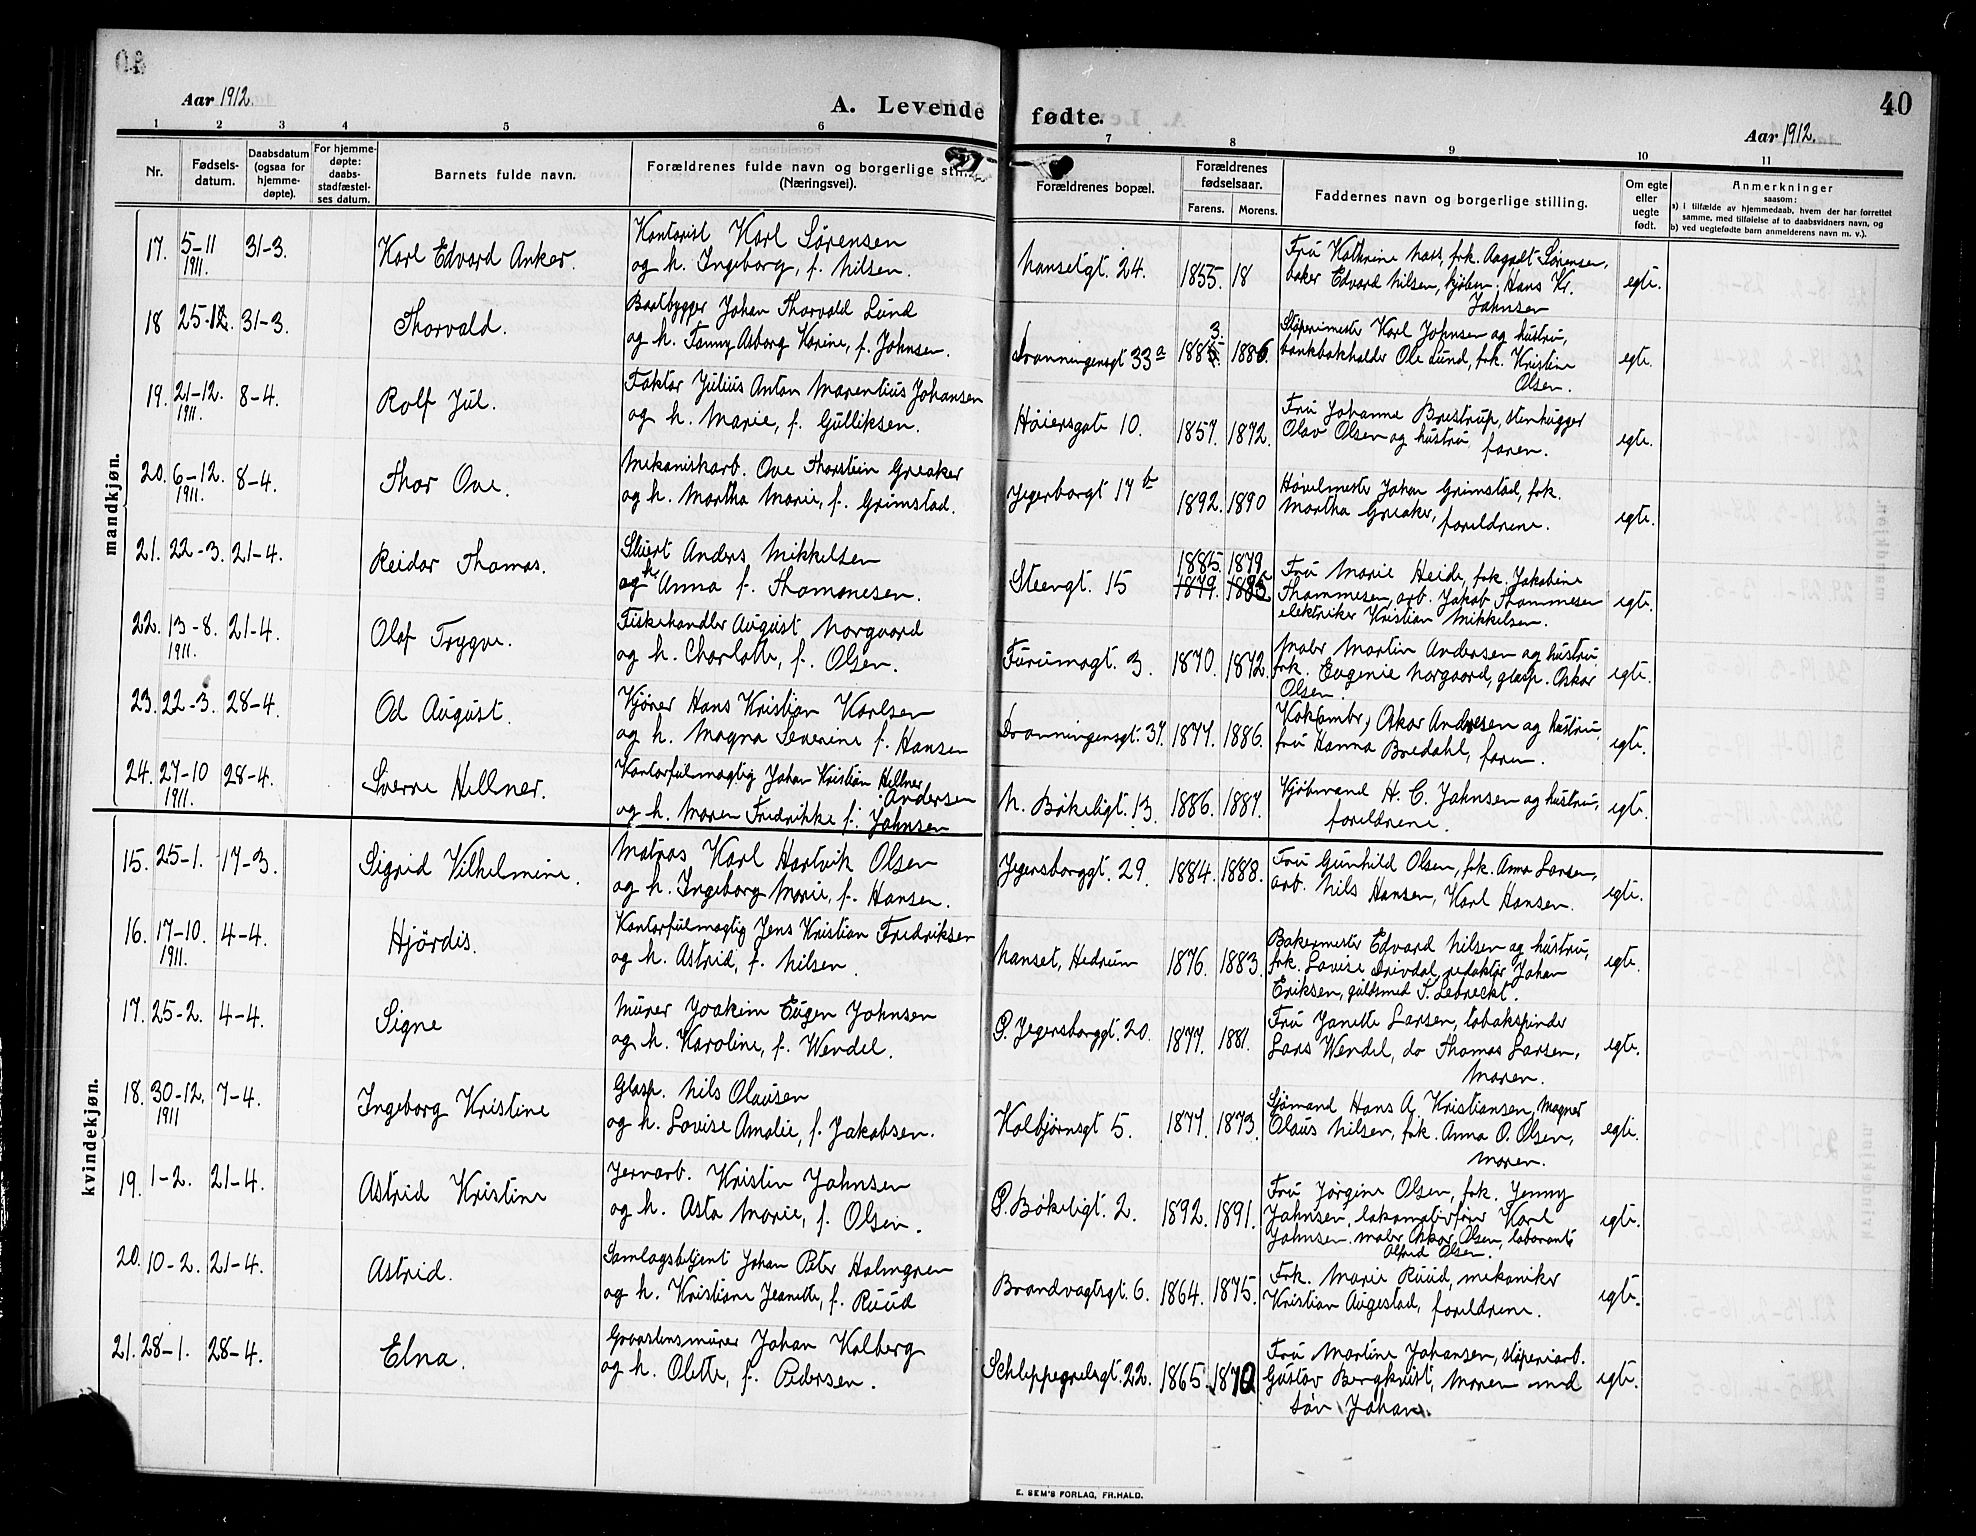 40
Aar 1912.
A. Levende fødte.
Aar 1912.
1 2 3 4 5 6 7 8 9 10 11
Nr.
Fødsels-
datum.
Daabsdatum
(ogsaa for
hjemme-
døpte).
For hjemme-
døpte:
daabs-
stadfæstel-
ses datum.
Barnets fulde navn.
Forældrenes fulde navn og borgerlige
(Næringsvei).
Forældrenes bopæl.
Forældrenes
fødselsaar.
Farens. Morens.
Faddernes navn og borgerlige stilling.
Om egte
eller
uegte
født.
Anmerkninger
saasom:
a) i tilfælde av hjemmedaab, hvem der har forrettet
samme, med tilføielse af to daabsvidners navn, og
b) ved uegtefødte barn anmelderens navn m. v.).
mandkjøn.
17. 5-11 1911. 31-3. Karl Edvard Anker.
Kontorist Karl Sørensen
og h. Ingeborg, f. Nilsen.
Nansetgt. 24. 1855. 18
Fru Kathrine Nass, frk. Aagodt Sørensen,
baker Edvard Nilsen, kjøbm. Hans Kr.
Jahnsen
egte.
18 25-12. 31-3. Thorvald.
Baatbygger Johan Thorvald Lund
og h. Fanny Asborg Karine, f. Johnsen.
Dronningensgt 33a 1883 1886.
Støperimester Karl Johnsen og hustru,
bankbokholder Ole Lund, frk. Kristine
Olsen.
egte.
19. 21-12. 1911. 8-4. Rolf Jul.
Faktor Julius Anton Marentius Johansen
og h. Marie, f. Gulliksen.
Høiersgate 10. 1857. 1872.
Fru Johanne Brestrup, stenhugger
Olav Olsen og hustru, faren.
egte.
20. 6-12. 1911. 8-4. Thor Ove.
Mekaniskarb. Ove Thorstein Greaker
og h. Martha Marie, f. Grimstad.
Jegerborgt 17b 1892. 1890
Høvelmester Johan Grimstad, frk.
Martha Greaker, foreldrene.
egte.
21. 22-3. 21-4. Reidar Thomas.
Stuert Anders Mikkelsen
og h. Anna f. Thomonesen.
Steengt. 15 1885. 1879.
1879. 1885
Fru Marie Heide, frk. Jakobine
Thommesen, arb. Jakob Thommesen
elektriker Kristian Mikkelsen.
egte.
22. 13-8. 1911. 21-4. Olaf Trygve.
Fiskehandler August Norgaard
og h. Charlotte, f. Olsen.
Furumogt. 3. 1870. 1872.
Maler Martin Andersen og hustru
frk. Eugenie Norgaard, glasp. Oskar
Olsen.
egte.
23. 22-3. 28-4. Od August.
Kjører Hans Kristian Karlsen
og h. Magna Severine f. Hansen
Dronningensgt. 37. 1877. 1886.
Oskar Andresen og hustru
fru Hanna Bredahl, faren.
egte.
24. 27-10 1911. 28-4. Sverre Hellner.
Kontorfulmægtig Johan Kristian Hellner
Andersen
og h. Maren Fredrikke f. Jahnsen
N. Bøkeligt. 13. 1886. 1887.
Kjøbmand H. C. Jahnsen og hustru,
foreldrene.
egte.
kvindekjøn.
15. 25-1. 17-3. Sigrid Vilhelmine.
Matros Karl Hartvik Olsen
og h. Ingeborg Marie, f. Hansen.
Jegersborggt. 29. 1884. 1888.
Fru Gunhild Olsen, frk. Anna Larsen,
arb. Nils Hansen, Karl Hansen.
egte.
16. 17-10. 1911. 4-4. Hjørdis.
Kontorfulmægtig Jens Kristian Fredriksen
og h. Astrid, f. Nilsen.
Nanset, Hedrum 1876. 1883.
Bakermester Edvard Nilsen og hustru,
frk. Lovise Drivdal, redaktør Johan
Eriksen, guldsmed T. Lebreckt.
egte.
17. 25-2. 4-4. Signe
Murer Joakim Eugen Johnsen
og h. Karoline, f. Wendel.
P. Jegersborggt. 20. 1877. 1881.
Fru Janette Larsen, tobakspinder
Lars Wendel, do Thomas Larsen,
Moren.
egte.
18. 30-12. 1911 7-4. Ingeborg Kristine
Glasp. Nils Olausen
og h. Lovise Amalie, f. Jakobsen.
Kolbjørnsgt 5. 1877. 1873.
Sjømand Hans A. Kristiansen, Magner
Olaus Nilsen, frk. Anna O. Olsen,
Moren.
egte.
19. 1-2. 21-4. Astrid Kristine
Jernarb. Kristin Johnsen
og h. Asta Marie, f. Olsen.
P. Bøkeligt. 2. 1892. 1891.
Fru Jørgine Olsen, frk. Jenny
Johnsen, lokomotivfører Karl
Johnsen, maler Oskar Olsen, laborant
Alfred Olsen.
egte.
20. 10-2. 21-4. Astrid.
Samlagsbetjent Johan Peter Holmgren
og h. Kristiane Jeanette, f. Ruud
Brandvagtsgt. 6. 1864. 1875.
Frk. Marie Ruud, mekaniker
Kristian Augestad, foreldrene.
egte.
21. 28-1. 28-4. Elna.
Graastensmurer Johan Kolberg
og h. Olette, f. Pedersen.
Schleppegrelsgt. 22. 1865. 1870
Fru Martine Johansen, støperiarb.
Gustav Bergkvist, Moren med
søn Johan.
egte.
E. SEM'S FORLAG, FR.HALD.